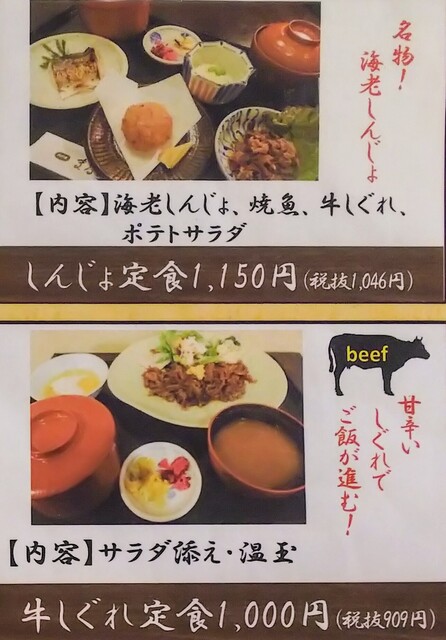 名物!
海老しんじょ
【内容】海老しんじょ、焼魚、牛しぐれ、
ポテトサラダ
しんじょ定食1,150円(税抜1,046円)
beef
甘辛い
しぐれで
ご飯が進む!
【内容】サラダ添え・温玉
牛しぐれ定食1,000円(税抜909円)